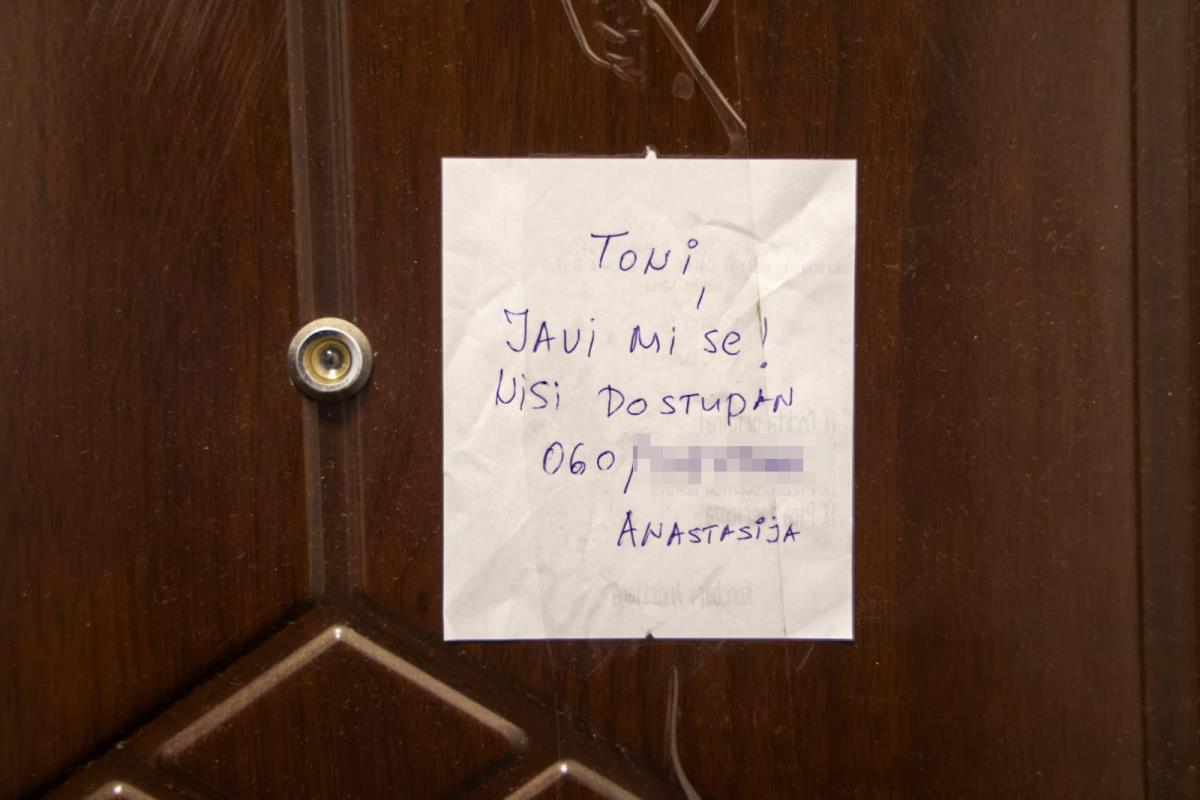 TONi,
JAVi Mi Se!
NiSi DOSTUPAN
060/
ANASTASiJA